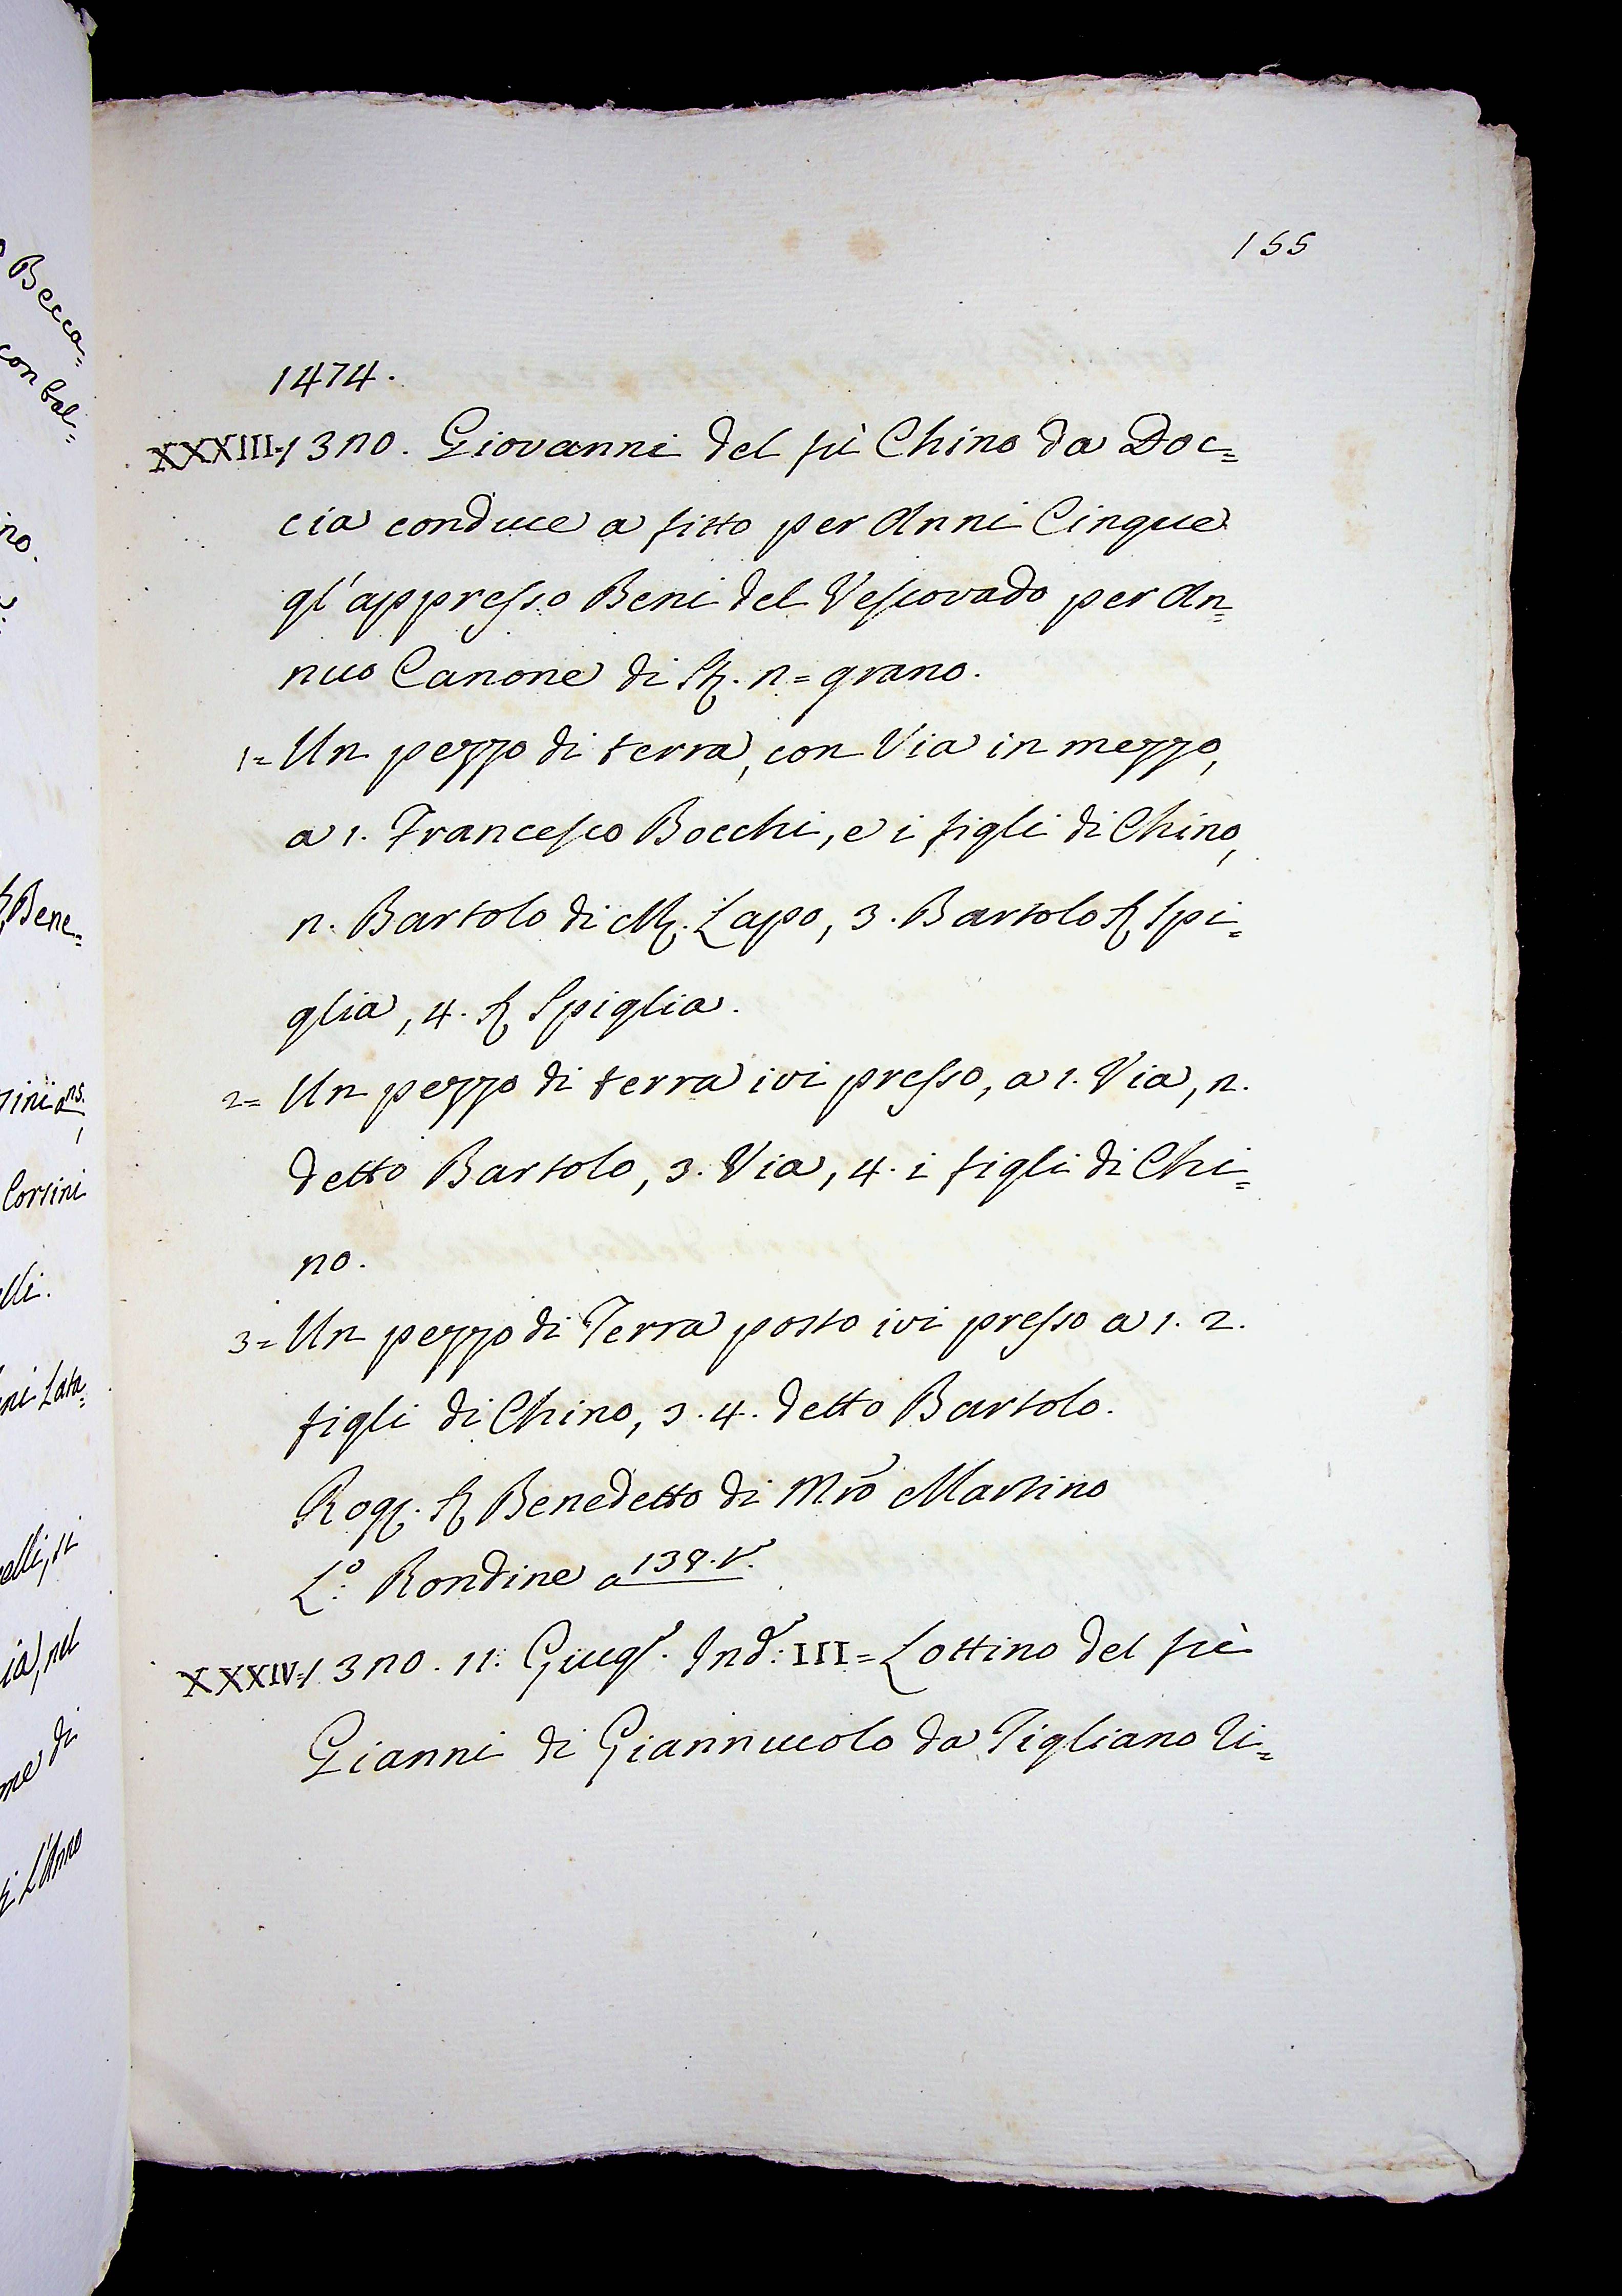 155
1474.
XXXIII=1320. Giovanni del fù Chino da Doc=
cia conduce a fitto per Anni Cinque
gl'appresso Beni del Vescovado per An=
nuo Canone di St. 2= grano.
1= Un pezzo di terra, con Via in mezzo,
a 1. Francesco Bocchi, e i figli di Chino,
2. Bartolo di M. Lapo, 3. Bartolo di Spi=
glia, 4. Spiglia.
2= Un pezzo di terra ivi presso, a 1. Via, 2.
detto Bartolo, 3. Via, 4. i figli di Chi=
no.
3= Un pezzo di Terra posto ivi presso a 1. 2.
figli di Chino, 3. 4. detto Bartolo.
Rog. Benedetto di Mrõ Martino
L.º Rondine a 138. v.
XXXIV=1320. 11. Giug. Ind. III= Lottino del fù
Gianni di Giannuccolo da Tigliano Ti=
Becca=
Bene=
Corsini
di L'Anno